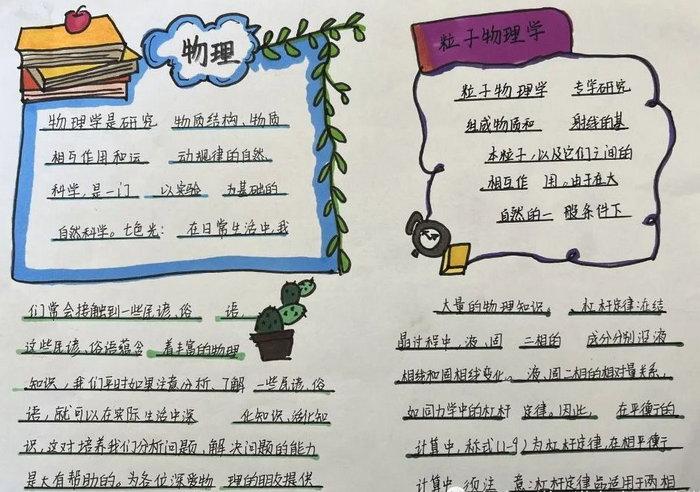 物理
物理学是研究 物质结构、物质
相互作用和运 动规律的自然
科学,是一门 以实验 为基础的
自然科学。七色光: 在日常生活中,我
们常会接触到一些民谚、俗 语,
这些民谚、俗语蕴含 着丰富的物理
知识,我们平时如果注意分析、了解 一些民谚、俗
语,就可以在实际生活中深 化知识、活化知
识,这对培养我们分析问题、解决问题的能力
是大有帮助的。为各位深爱物 理的朋友提供
粒子物理学
粒子物理学 专学研究
组成物质和 射线的基
本粒子,以及它们之间的
相互作 用。由于在大
自然的一 般条件下
大量的物理知识。 杠杆定律:在结
晶过程中,液、固 二相的 成分分别沿液
相线和固相线变化。液、固二相的相对量关系,
如同力学中的杠杆 定律。因此, 在平衡的
计算中,称式(1-9)为杠杆定律,在相平衡
计算中 须注 意:杠杆定律 只适用于两相